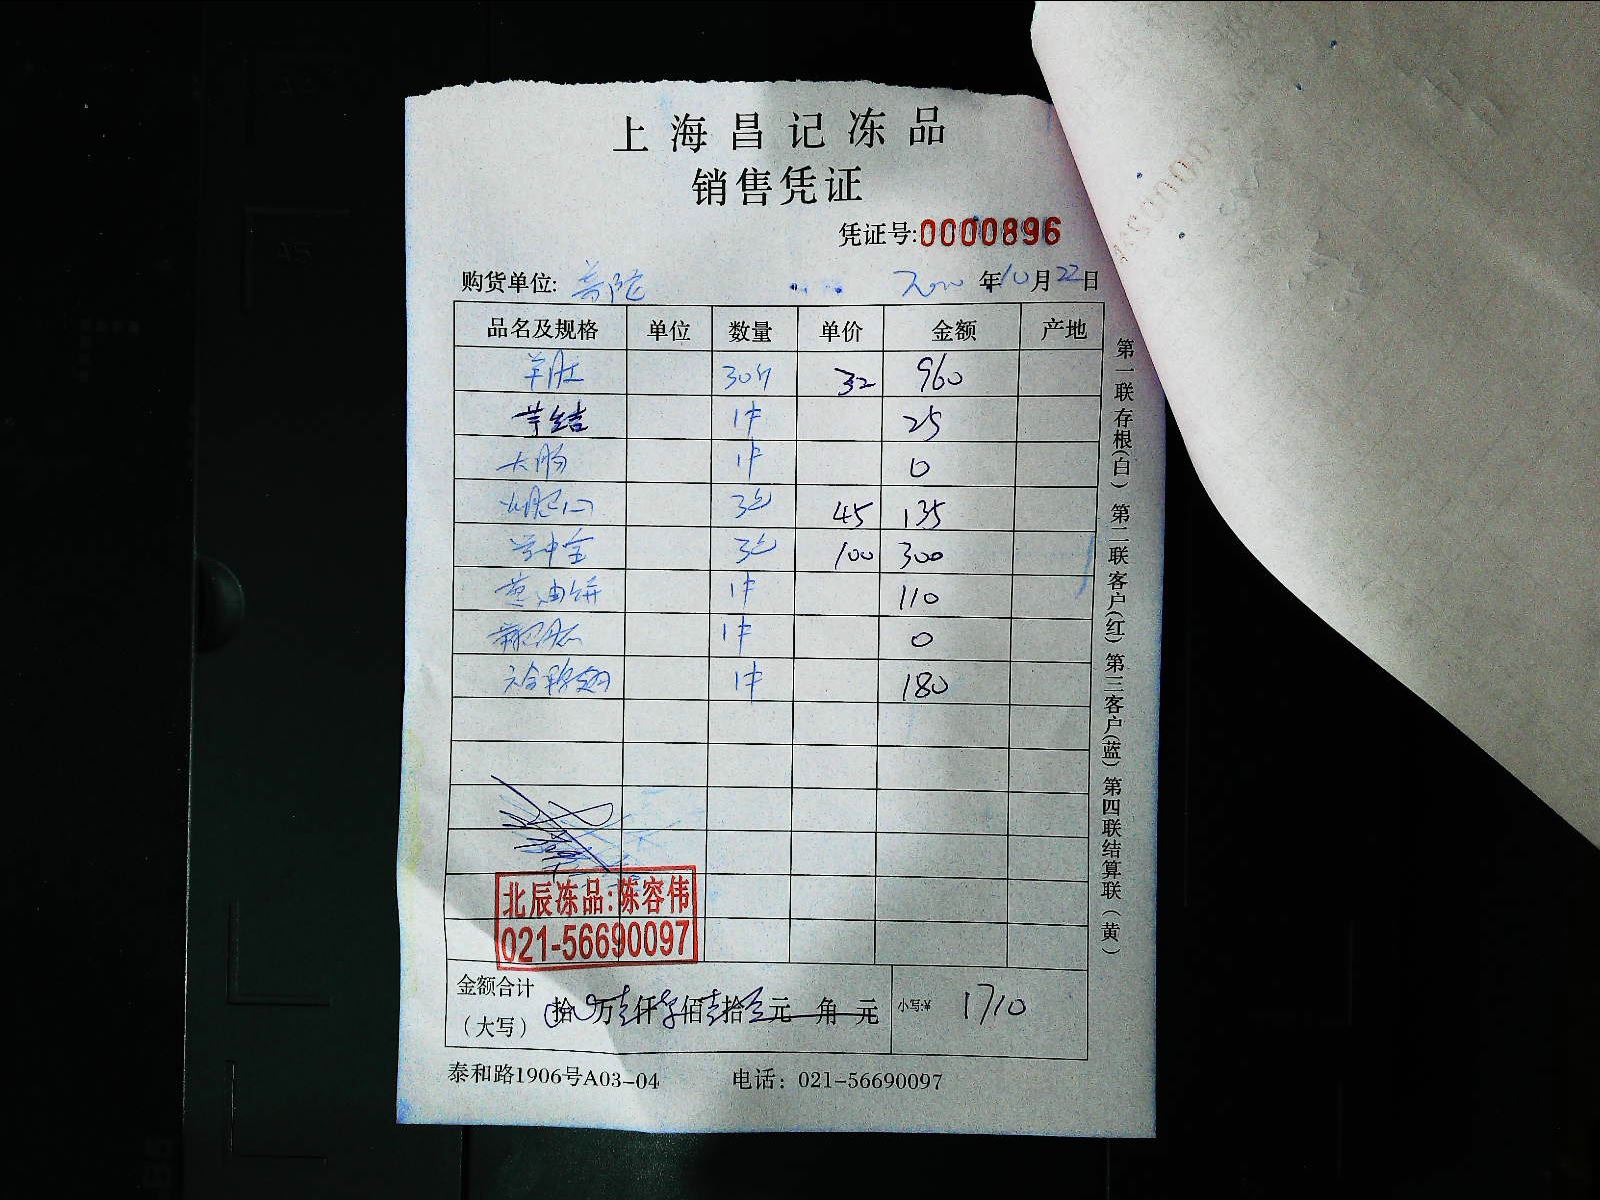 上海昌记冻品
销售凭证
凭证号:0000896
购货单位: 普陀 年10月22日
品名及规格 单位 数量 单价 金额 产地
羊肚 30斤 32 960
芋结 1件 25
大肠 1件 0
3包 45 135
3包 100 300
葱油饼 1件 110
1件 0
1件 180
北辰冻品:陈容伟
021-56690097
金额合计
(大写) 拾 万 仟 佰 拾 元 角 元 小写:¥ 1710
泰和路1906号A03-04 电话: 021-56690097
第一联存根(白) 第二联客户(红) 第三客户(蓝) 第四联结算联(黄)